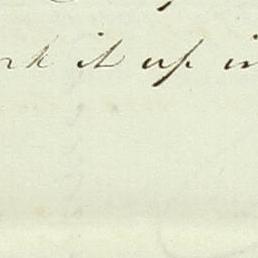 rk it up in